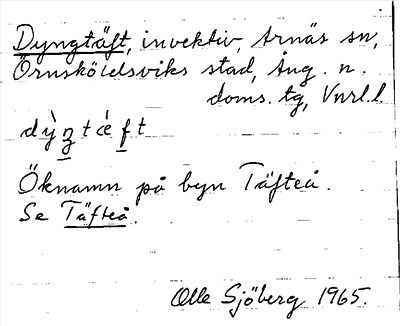 Dyngtäft, invektiv, Arnäs sn,
Örnsköldsviks stad, Ång. n.
doms. tg, Vnrl. l.
dỳŋtæ̀ft
Öknamn på byn Täfteå.
Se Täfteå.
Olle Sjöberg 1965.